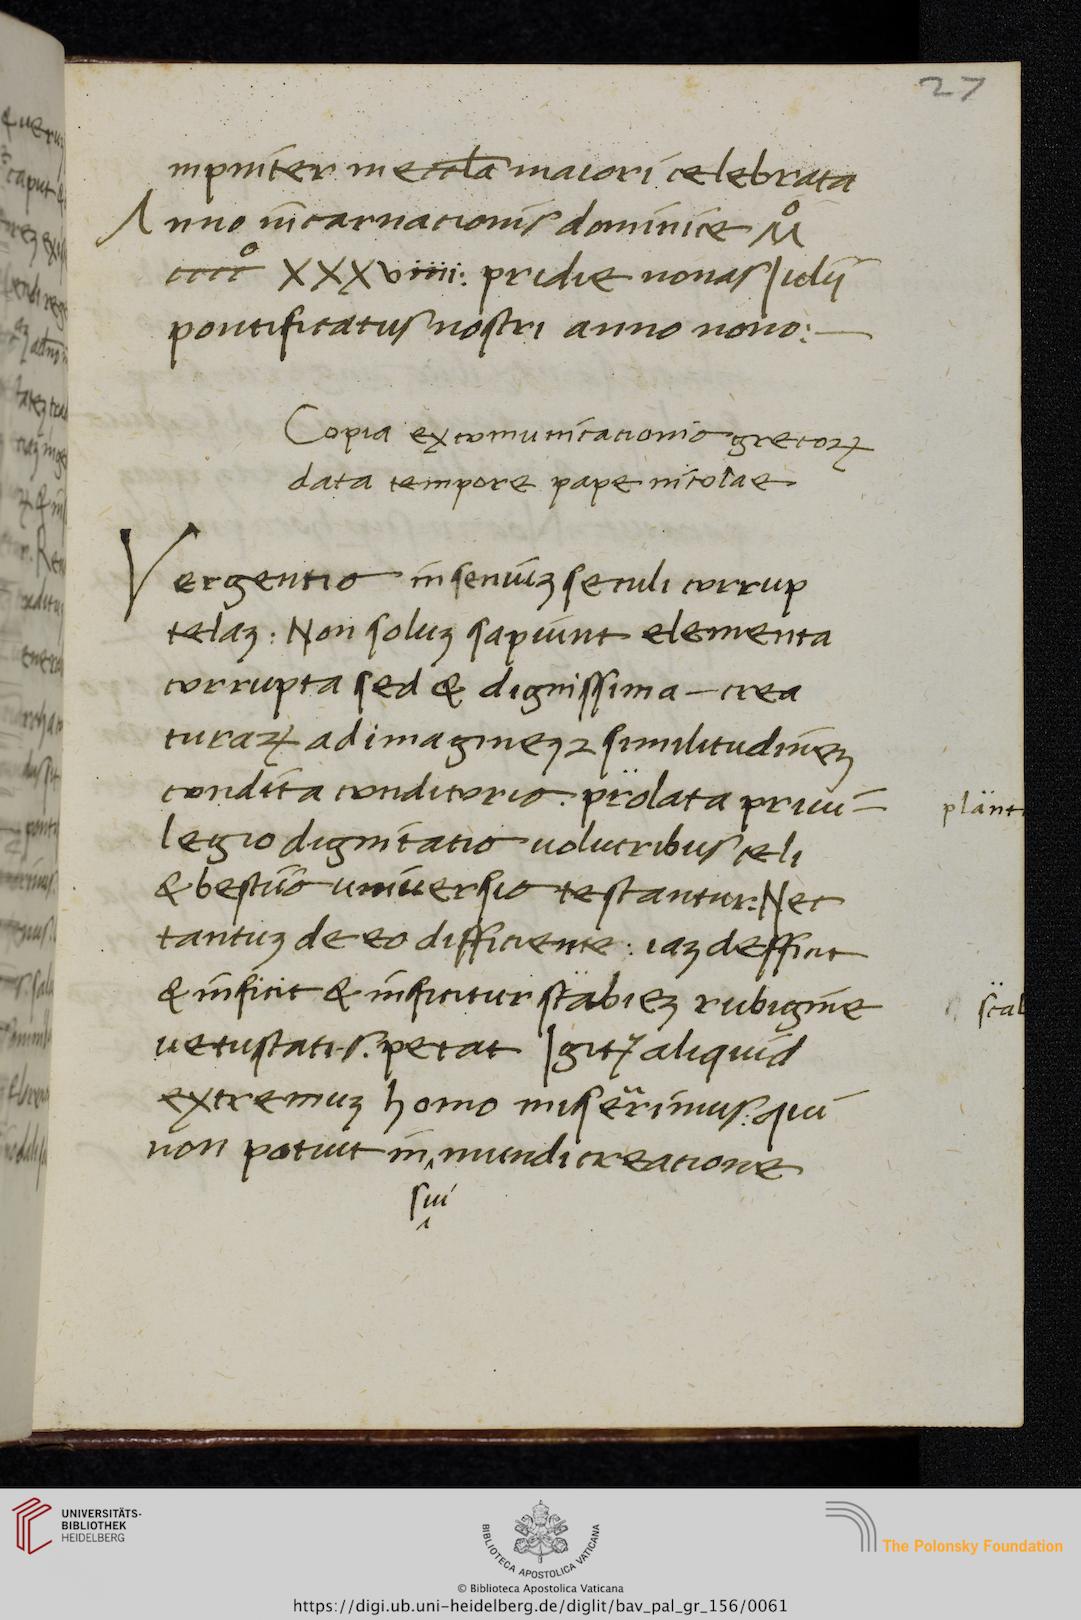 27
mpniter in eccl̄a maiori celebrata
Anno incarnacionis dominice M̊
cccc̊ XXXviiii: pridie nonas Julii
pontificatus nostri anno nono:—
Copia excomunicacionis grecoꝝ
data tempore pape nicolae
Vergentis in seniuꝫ seculi corrup
telaꝫ: Non soluꝫ sapiunt elementa
corrupta sed & dignissima — crea
turaꝝ ad imagineꝫ similitudineꝫ
condita conditoris. prolata priui=
legio dignitatis uolucribus celi
& bestiis uniuersis testantur: Nec
tantuꝫ de eo difficiente: iaꝫ defficit
& inficit & inficitur scabieꝫ rubigine
uetustatis. petat Igit᷑ aliquid
extremuꝫ homo miserrimus: qui
non potuit in ‸ mundi creatione
sui
plant
scab
UNIVERSITÄTS-
BIBLIOTHEK
HEIDELBERG
BIBLIOTECA APOSTOLICA VATICANA
The Polonsky Foundation
© Biblioteca Apostolica Vaticana
https://digi.ub.uni-heidelberg.de/diglit/bav_pal_gr_156/0061